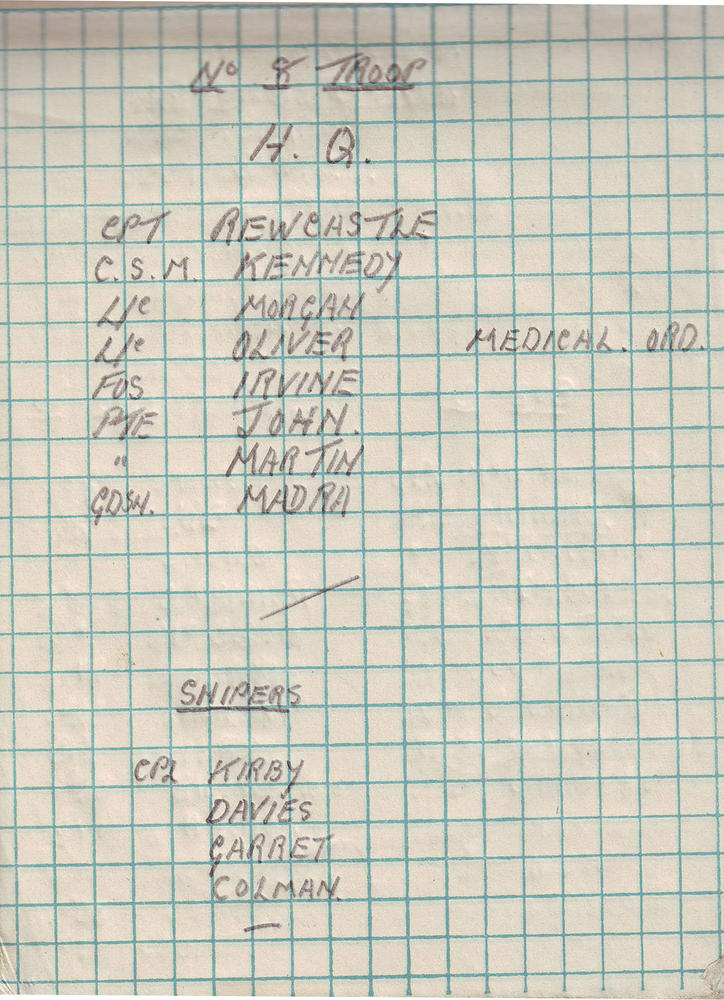 No 8 TROOP
H. Q.
CPT REWCASTLE
C.S.M. KENNEDY
L/c MORGAN
L/c OLIVER MEDICAL. ORD.
FUS IRVINE
PTE JOHN.
" MARTIN
GDSN. MADRA
SNIPERS
CPL KIRBY
DAVIES
GARRET
COLMAN.